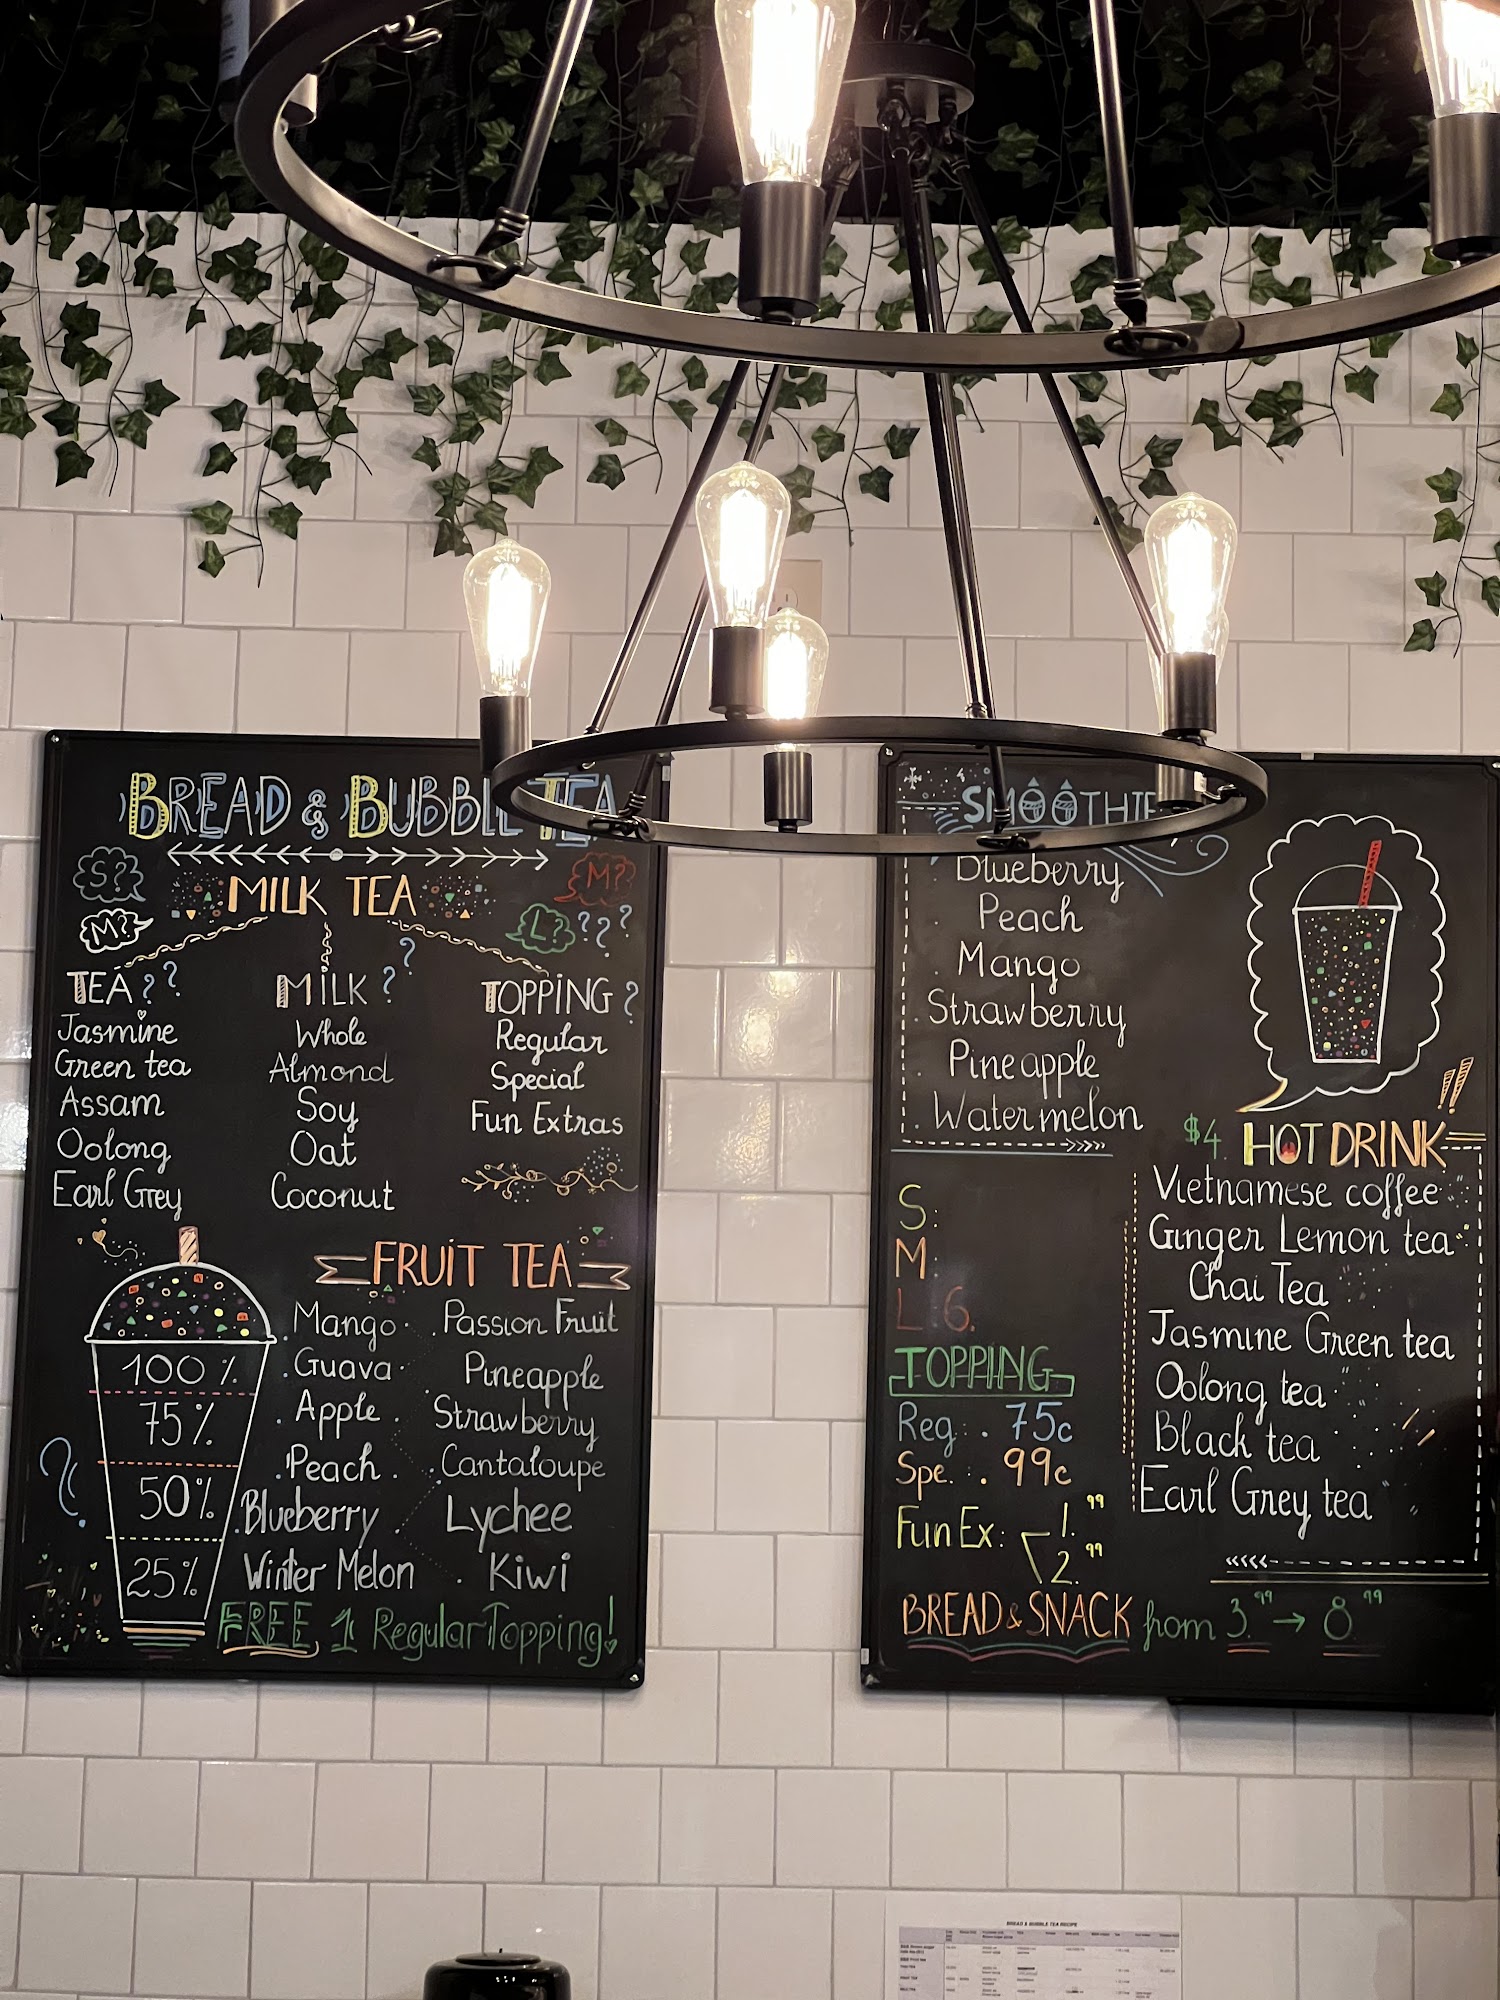 BREAD & BUBBLE TEA
S?
M?
MILK TEA
M?
L? ???
TEA??
Jasmine
Green tea
Assam
Oolong
Earl Grey
MILK?
Whole
Almond
Soy
Oat
Coconut
TOPPING?
Regular
Special
Fun Extras
FRUIT TEA
Mango
Guava
Apple
Peach
Blueberry
Winter Melon
Passion Fruit
Pineapple
Strawberry
Cantaloupe
Lychee
Kiwi
100%
75%
50%
25%
FREE 1 Regular Topping!
SMOOTHIE
Blueberry
Peach
Mango
Strawberry
Pineapple
Watermelon
S:
M
L: 6.
TOPPING
Reg: . 75c
Spe. : . 99c
Fun Ex: 1.99
2.99
!!
$4. HOT DRINK
Vietnamese coffee
Ginger Lemon tea
Chai Tea
Jasmine Green tea
Oolong tea
Black tea
Earl Grey tea
BREAD & SNACK from 3.99 → 8.99
BREAD & BUBBLE TEA RECIPE